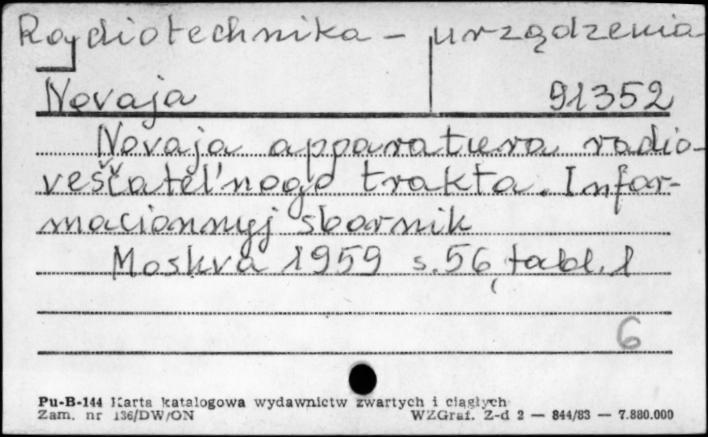 Radiotechnika - urządzenia
Novaja 91352
Novaja apparatura radio-
veščatel'nogo trakta. Infor-
macionnyj sbornik
Moskva 1959 s. 56, tabl. 1
6
Pu-B-144 Karta katalogowa wydawnictw zwartych i ciągłych
Zam. nr 136/DW/ON WZGraf. Z-d 2 — 844/83 — 7.880.000